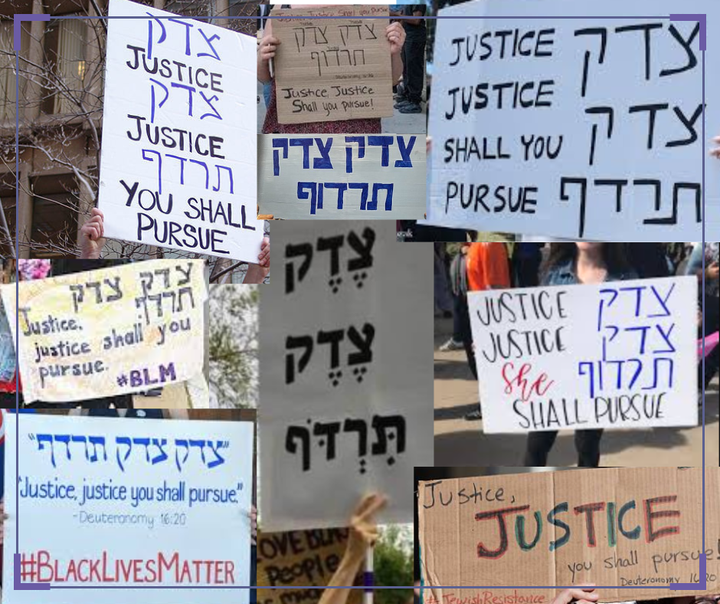 צדק
JUSTICE
צדק
JUSTICE
תרדף
YOU SHALL
PURSUE
צדק צדק
תרדוף
Justice, Justice
Shall you pursue!
צדק צדק
תרדוף
JUSTICE צדק
JUSTICE
SHALL YOU צדק
PURSUE תרדף
צדק צדק
תרדף
Justice,
justice shall you
pursue.
#BLM
צֶדֶק
צֶדֶק
תִּרְדֹּף
JUSTICE צדק
JUSTICE צדק
She תרדוף
SHALL PURSUE
"צדק צדק תרדף"
"Justice, justice you shall pursue."
-Deuteronomy 16:20
#BLACKLIVESMATTER
People
Justice,
JUSTICE
you shall pursue!
Deuteronomy 16:20
#JewishResistance